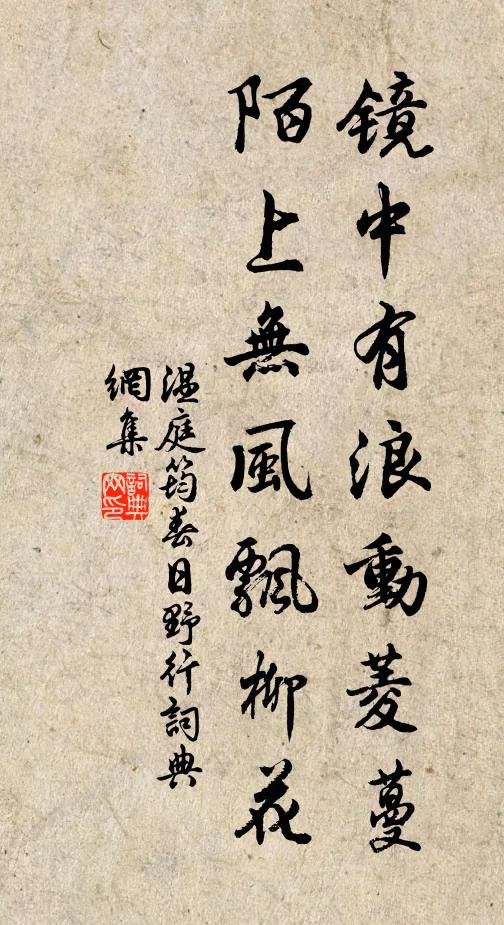 鏡中有浪動菱蔓
陌上無風飄柳花
温庭筠春日野行詞典
網集
詞典
网印